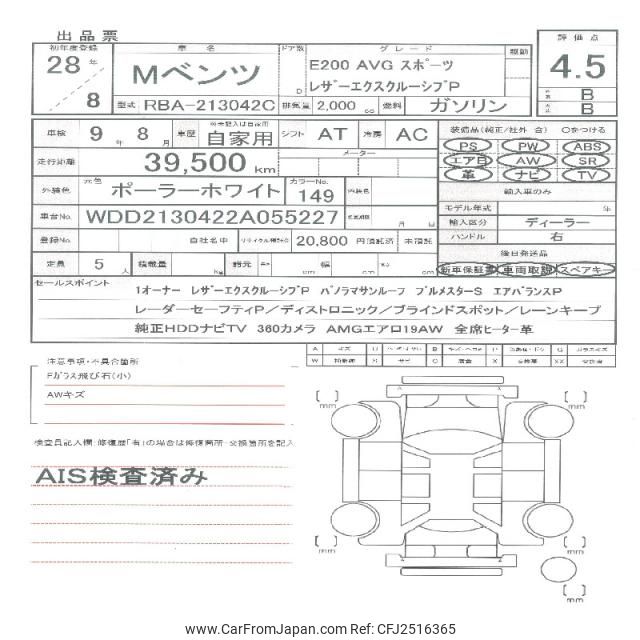 出品票
初年度登録 車名 ドア数 グレード 駆動 評価点
28年 Mベンツ D E200 AVG スポーツ 4.5
レザーエクスクルーシブP
8 型式 RBA-213042C 排気量 2,000 cc 燃料 ガソリン B
B
車検 9年 8月 車歴 自家用 シフト AT 冷房 AC 装備品(純正/社外 含) ○をつける
PS PW ABS
走行距離 39,500 km メーター エアB AW SR
革 ナビ TV
外装色 元色 ポーラーホワイト カラーNo. 149 輸入車のみ
モデル年式 年
車台No. WDD2130422A055227 月 日 輸入区分 ディーラー
登録No. 自社名中 20,800 円預託済 未預託 ハンドル 右
後日発送品
定員 5人 積載量 kg 諸元 cm 幅 cm cm 新車保証書 車両取説 スペアキー
セールスポイント 1オーナー レザーエクスクルーシブP パノラマサンルーフ ブルメスターS エアバランスP
レーダーセーフティP/ディストロニック/ブラインドスポット/レーンキープ
純正HDDナビTV 360カメラ AMGエアロ19AW 全席ヒーター革
注意事項・不具合箇所
Fガラス飛び石(小)
AWキズ
検査員記入欄 修復歴「有」の場合は修復箇所・交換箇所を記入
AIS検査済み
[ ] mm
[ ] mm
[ ] mm
[ ] mm
[ ] mm
www.CarFromJapan.com Ref: CFJ2516365